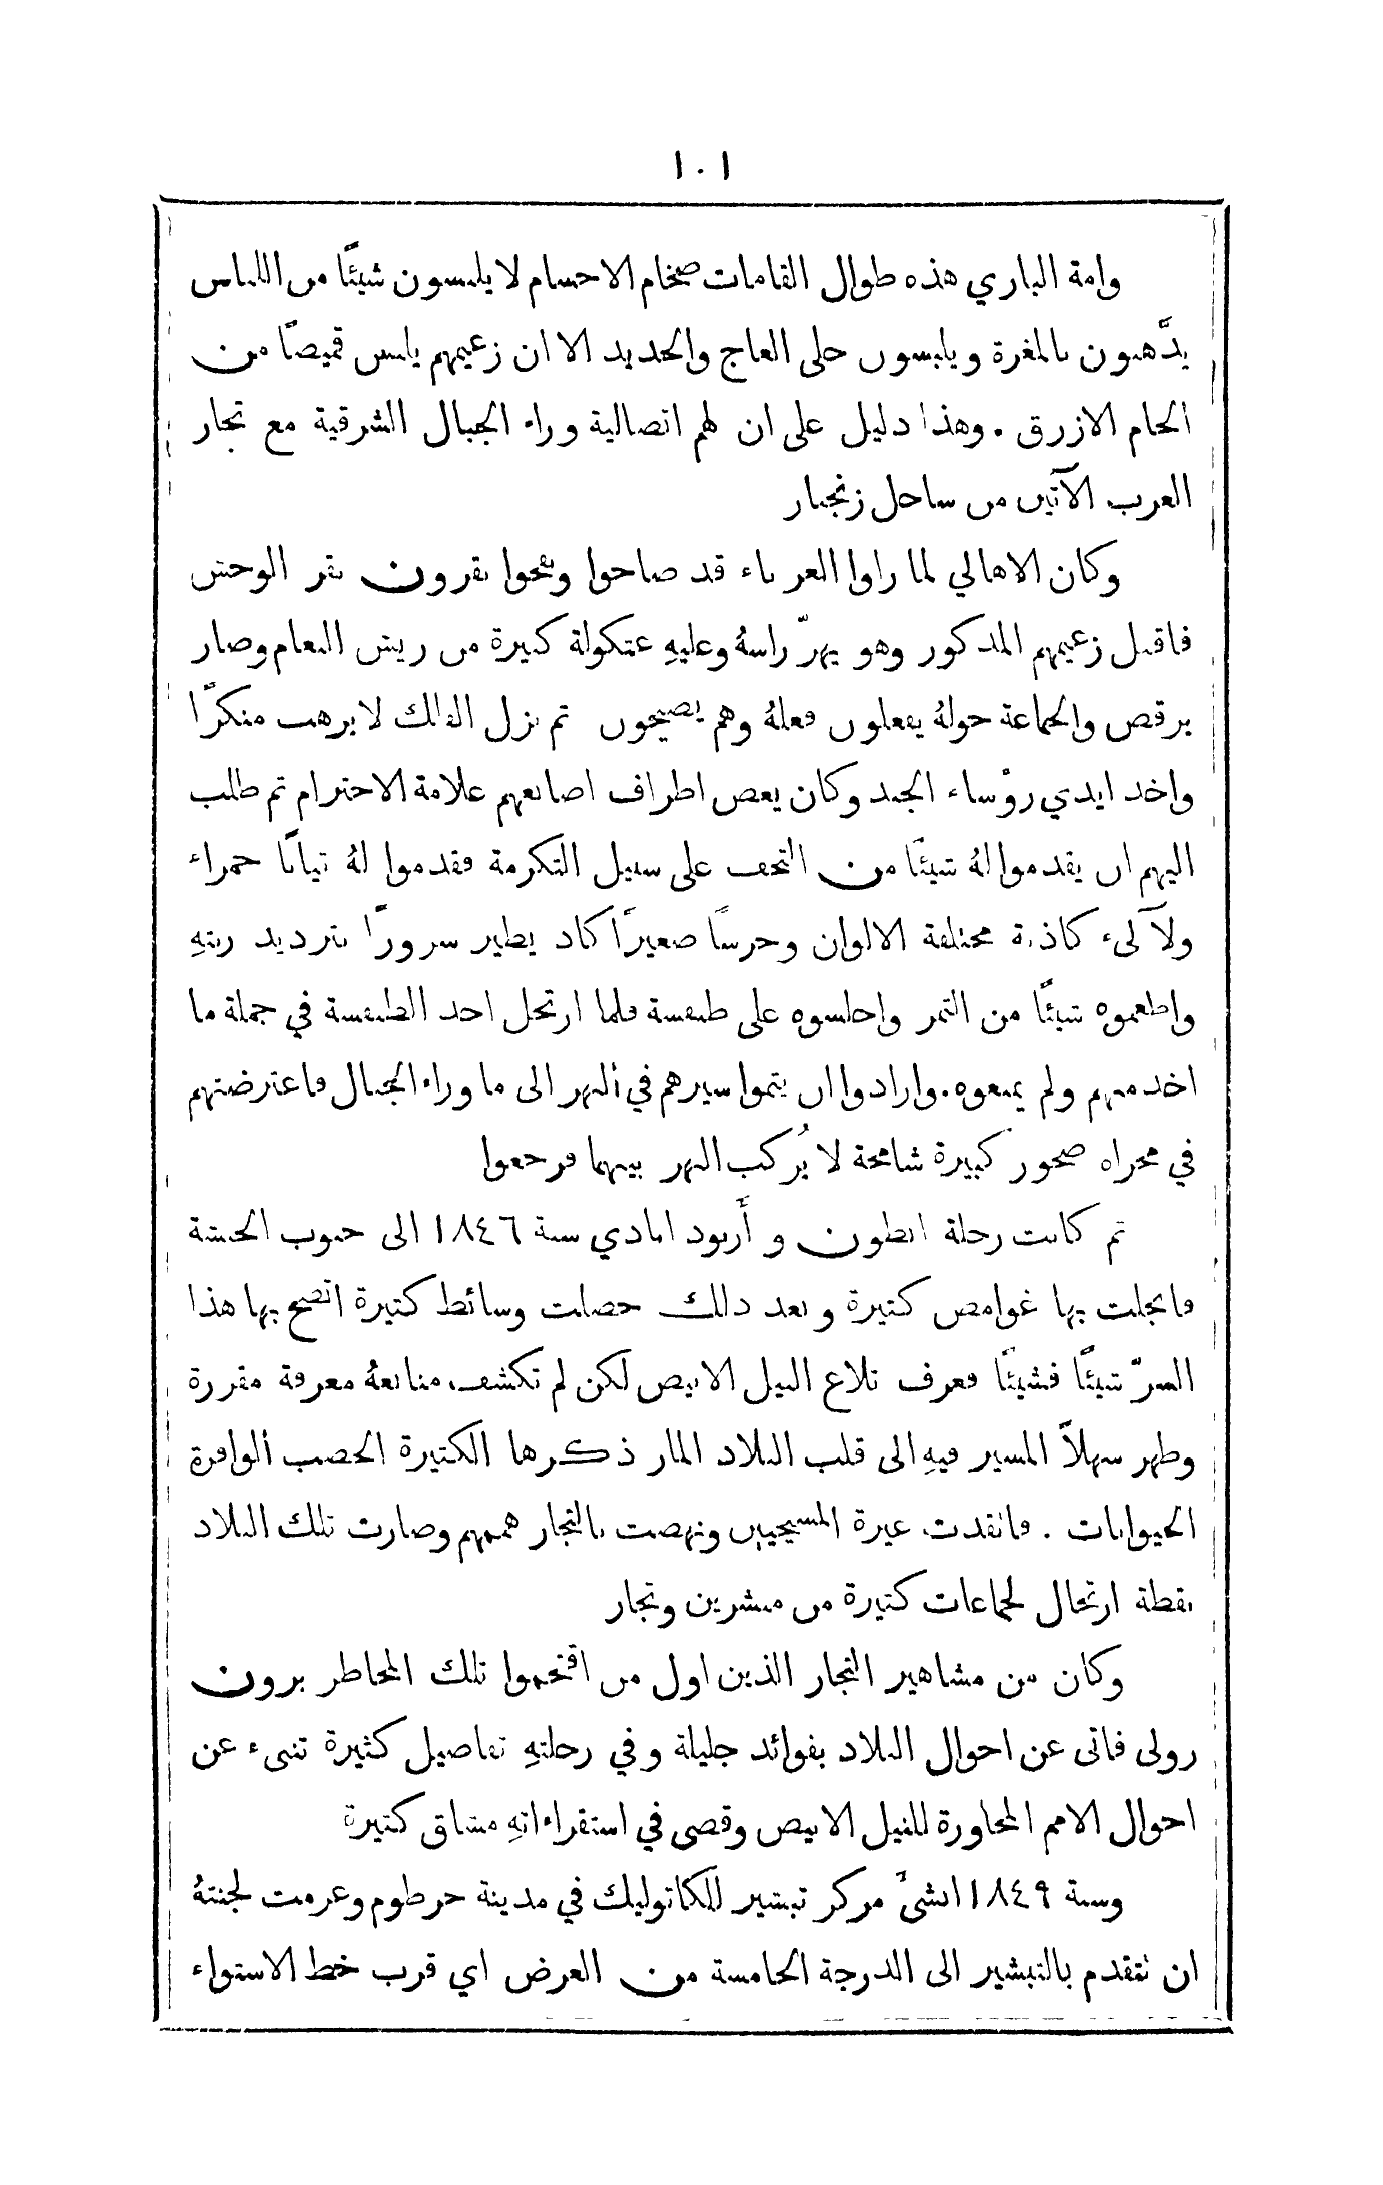 ١٠١
وامة الباري هذه طوال القامات ضخام الاجسام لا يلبسون شيئًا من اللباس
يدَّهنون بالمغرة ويلبسون حلي العاج والحديد الا ان زعيمهم يلبس قميصًا من
الخام الازرق . وهذا دليل على ان لهم اتصالية وراء الجبال الشرقية مع تجار
العرب الآتين من ساحل زنجبار
وكان الاهالي لما راوا الغرباء قد صاحوا ونفخوا بقرون بقر الوحش
فاقبل زعيمهم المذكور وهو يهزّ راسهُ وعليهِ عثكولة كبيرة من ريش النعام وصار
يرقص والجماعة حولهُ يفعلون فعلهُ وهم يصيحون ثم نزل الفلك لا يرهب منكرًا
واخذ ايدي روٴساء الجند وكان يعض اطراف اصابعهم علامة الاحترام ثم طلب
اليهم ان يقدموا لهُ شيئًا من التحف على سبيل التكرمة فقدموا لهُ ثيابًا حمراء
ولآلىء كاذبة مختلفة الالوان وجرسًا صغيرًا كاد يطير سرورًا بترديد رنتهِ
واطعموه شيئًا من التمر واجلسوه على طنفسة فلما ارتحل اخذ الطنفسة في جملة ما
اخذ منهم ولم يمنعوه. وارادوا ان يتموا سيرهم في النهر الى ما وراء الجبال فاعترضتهم
في مجراه صخور كبيرة شامخة لا يُركب النهر بينهما فرجعوا
ثم كانت رحلة انطون و أَربود ابادي سنة ١٨٤٦ الى جنوب الحبشة
فانجلت بها غوامض كثيرة وبعد ذلك حصلت وسائط كثيرة اتضح بها هذا
السرّ شيئًا فشيئًا فعرف تلاع النيل الابيض لكن لم تكشف منابعهُ معرفة مقررة
وظهر سهلاً المسير فيهِ الى قلب البلاد المار ذكرها الكثيرة الخصب الوافرة
الحيوانات . فاتقدت غيرة المسيحيين ونهضت بالتجار هممهم وصارت تلك البلاد
نقطة ارتحال لجماعات كثيرة من مبشرين وتجار
وكان من مشاهير التجار الذين اول من اقتحموا تلك المخاطر برون
رولى فاتى عن احوال البلاد بفوائد جليلة وفي رحلتهِ تفاصيل كثيرة تنبىء عن
احوال الامم المجاورة للنيل الابيض وقصى في استقراءاتهِ مشاق كثيرة
وسنة ١٨٤٩ انشئَ مركز تبشير للكاثوليك في مدينة خرطوم وعزمت لجنتهُ
ان تتقدم بالتبشير الى الدرجة الخامسة من العرض اي قرب خط الاستواء